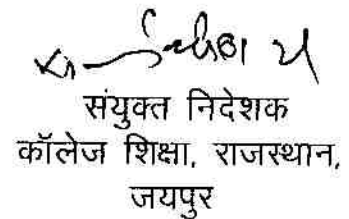 संयुक्त निदेशक
कॉलेज शिक्षा, राजस्थान,
जयपुर